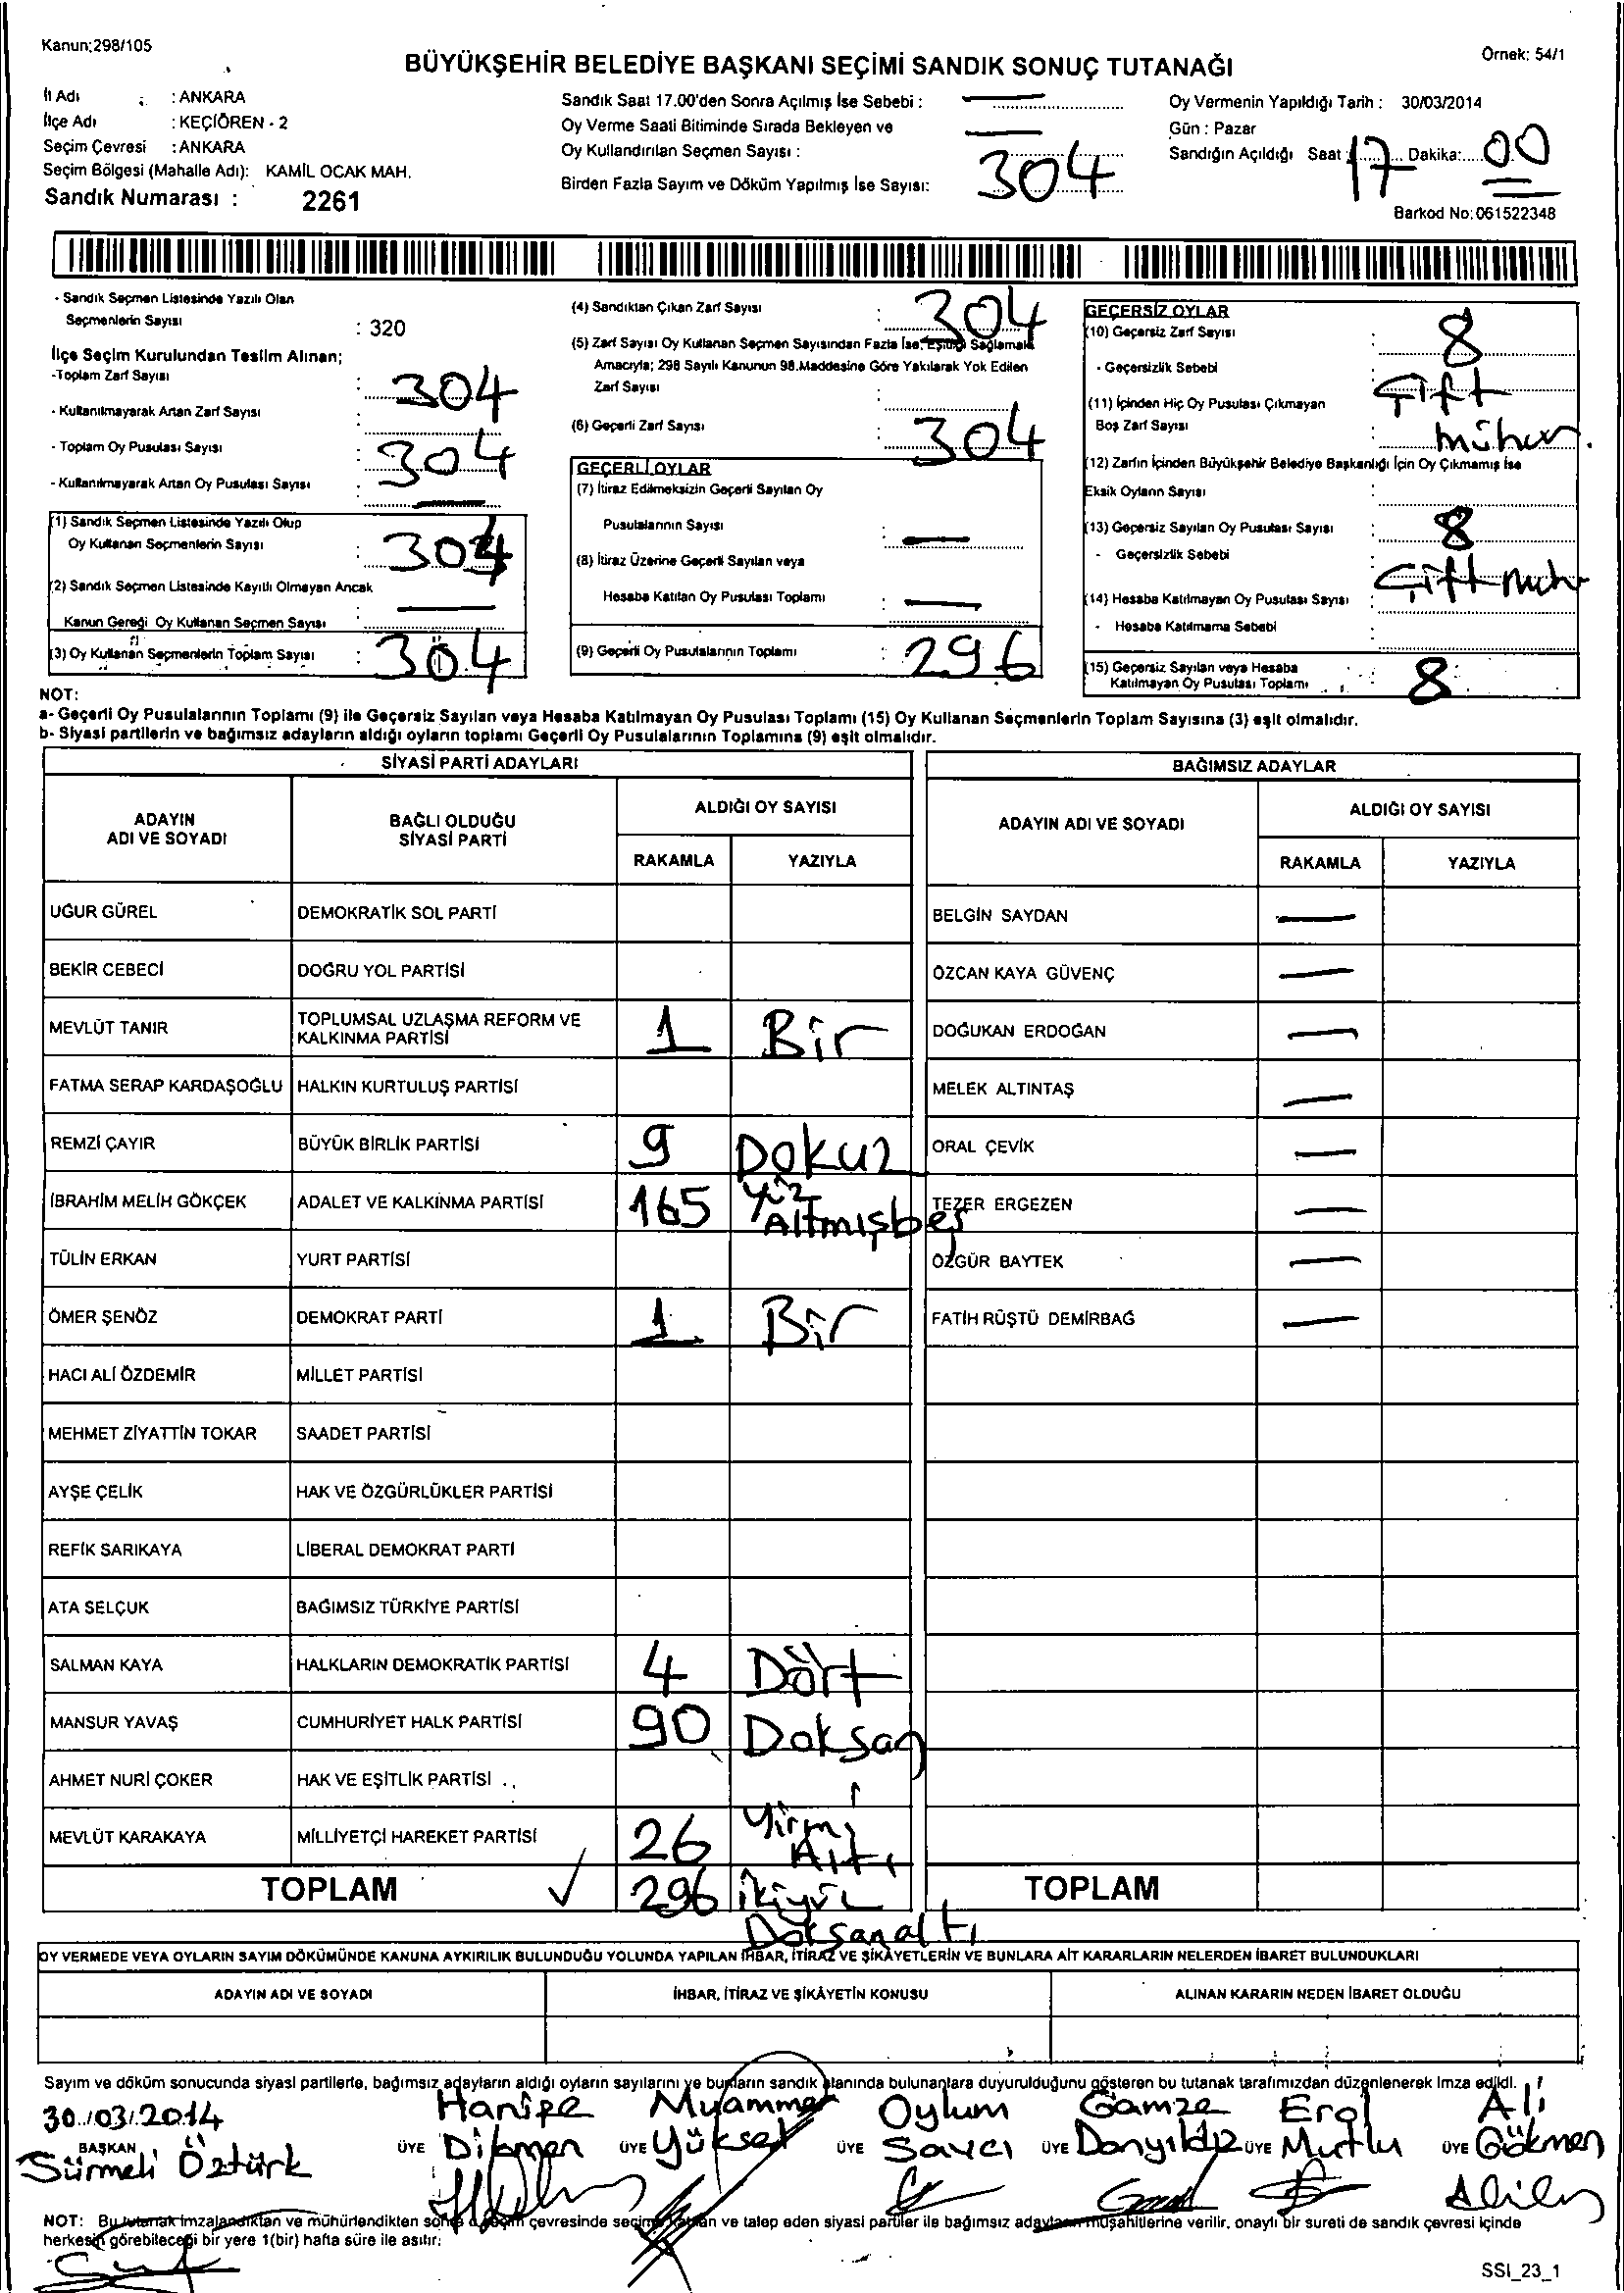 Kanun;298/105
Örnek: 54/1
BÜYÜKŞEHİR BELEDİYE BAŞKANI SEÇİMİ SANDIK SONUÇ TUTANAĞI
İl Adı : ANKARA
İlçe Adı : KEÇİÖREN - 2
Seçim Çevresi : ANKARA
Seçim Bölgesi (Mahalle Adı): KAMİL OCAK MAH.
Sandık Numarası : 2261
Sandık Saat 17.00'den Sonra Açılmış İse Sebebi : —
Oy Verme Saati Bitiminde Sırada Bekleyen ve
Oy Kullandırılan Seçmen Sayısı : —
Birden Fazla Sayım ve Döküm Yapılmış İse Sayısı: 304
Oy Vermenin Yapıldığı Tarih : 30/03/2014
Gün : Pazar
Sandığın Açıldığı Saat : 17 Dakika: 00
Barkod No: 061522348
- Sandık Seçmen Listesinde Yazılı Olan
Seçmenlerin Sayısı : 320
İlçe Seçim Kurulundan Teslim Alınan;
-Toplam Zarf Sayısı : 304
- Kullanılmayarak Artan Zarf Sayısı :
- Toplam Oy Pusulası Sayısı : 304
- Kullanılmayarak Artan Oy Pusulası Sayısı : —
(1) Sandık Seçmen Listesinde Yazılı Olup
Oy Kullanan Seçmenlerin Sayısı : 304
(2) Sandık Seçmen Listesinde Kayıtlı Olmayan Ancak
Kanun Gereği Oy Kullanan Seçmen Sayısı —
(3) Oy Kullanan Seçmenlerin Toplam Sayısı : 304
(4) Sandıktan Çıkan Zarf Sayısı : 304
(5) Zarf Sayısı Oy Kullanan Seçmen Sayısından Fazla İse; Eşitliği Sağlamak
Amacıyla; 298 Sayılı Kanunun 98.Maddesine Göre Yakılarak Yok Edilen
Zarf Sayısı :
(6) Geçerli Zarf Sayısı : 304
GEÇERLİ OYLAR
(7) İtiraz Edilmeksizin Geçerli Sayılan Oy
Pusulalarının Sayısı : —
(8) İtiraz Üzerine Geçerli Sayılan veya
Hesaba Katılan Oy Pusulası Toplamı : —
(9) Geçerli Oy Pusulalarının Toplamı : 296
GEÇERSİZ OYLAR
(10) Geçersiz Zarf Sayısı : 8
- Geçersizlik Sebebi : Çift
(11) İçinden Hiç Oy Pusulası Çıkmayan
Boş Zarf Sayısı : mühür.
(12) Zarfın İçinden Büyükşehir Belediye Başkanlığı İçin Oy Çıkmamış İse
Eksik Oyların Sayısı :
(13) Geçersiz Sayılan Oy Pusulası Sayısı : 8
- Geçersizlik Sebebi : Çift müh
(14) Hesaba Katılmayan Oy Pusulası Sayısı :
- Hesaba Katılmama Sebebi :
(15) Geçersiz Sayılan veya Hesaba
Katılmayan Oy Pusulası Toplamı : 8
NOT:
a- Geçerli Oy Pusulalarının Toplamı (9) ile Geçersiz Sayılan veya Hesaba Katılmayan Oy Pusulası Toplamı (15) Oy Kullanan Seçmenlerin Toplam Sayısına (3) eşit olmalıdır.
b- Siyasi partilerin ve bağımsız adayların aldığı oyların toplamı Geçerli Oy Pusulalarının Toplamına (9) eşit olmalıdır.
SİYASİ PARTİ ADAYLARI
ADAYIN ADI VE SOYADI BAĞLI OLDUĞU SİYASİ PARTİ ALDIĞI OY SAYISI
RAKAMLA YAZIYLA
UĞUR GÜREL DEMOKRATİK SOL PARTİ
BEKİR CEBECİ DOĞRU YOL PARTİSİ
MEVLÜT TANIR TOPLUMSAL UZLAŞMA REFORM VE KALKINMA PARTİSİ 1 Bir
FATMA SERAP KARDAŞOĞLU HALKIN KURTULUŞ PARTİSİ
REMZİ ÇAYIR BÜYÜK BİRLİK PARTİSİ 9 Dokuz
İBRAHİM MELİH GÖKÇEK ADALET VE KALKINMA PARTİSİ 165 Yüz Altmışbeş
TÜLİN ERKAN YURT PARTİSİ
ÖMER ŞENÖZ DEMOKRAT PARTİ 1 Bir
HACI ALİ ÖZDEMİR MİLLET PARTİSİ
MEHMET ZİYATTİN TOKAR SAADET PARTİSİ
AYŞE ÇELİK HAK VE ÖZGÜRLÜKLER PARTİSİ
REFİK SARIKAYA LİBERAL DEMOKRAT PARTİ
ATA SELÇUK BAĞIMSIZ TÜRKİYE PARTİSİ
SALMAN KAYA HALKLARIN DEMOKRATİK PARTİSİ 4 Dört
MANSUR YAVAŞ CUMHURİYET HALK PARTİSİ 90 Doksan
AHMET NURİ ÇOKER HAK VE EŞİTLİK PARTİSİ
MEVLÜT KARAKAYA MİLLİYETÇİ HAREKET PARTİSİ 26 Yirmi Altı
TOPLAM ✓ 296 İkiyüz Doksanaltı
BAĞIMSIZ ADAYLAR
ADAYIN ADI VE SOYADI ALDIĞI OY SAYISI
RAKAMLA YAZIYLA
BELGİN SAYDAN —
ÖZCAN KAYA GÜVENÇ —
DOĞUKAN ERDOĞAN —
MELEK ALTINTAŞ —
ORAL ÇEVİK —
TEZER ERGEZEN —
ÖZGÜR BAYTEK —
FATİH RÜŞTÜ DEMİRBAĞ —
TOPLAM
OY VERMEDE VEYA OYLARIN SAYIM DÖKÜMÜNDE KANUNA AYKIRILIK BULUNDUĞU YOLUNDA YAPILAN İHBAR, İTİRAZ VE ŞİKÂYETLERİN VE BUNLARA AİT KARARLARIN NELERDEN İBARET BULUNDUKLARI
ADAYIN ADI VE SOYADI İHBAR, İTİRAZ VE ŞİKÂYETİN KONUSU ALINAN KARARIN NEDEN İBARET OLDUĞU
Sayım ve döküm sonucunda siyasi partilerle, bağımsız adayların aldığı oyların sayılarını ve bunların sandık alanında bulunanlara duyurulduğunu gösteren bu tutanak tarafımızdan düzenlenerek imza edildi.
30/03/2014
BAŞKAN Sürmeli Öztürk
ÜYE Hanife Dikmen
ÜYE Muammer Yüksel
ÜYE Oylum Savcı
ÜYE Gamze Danyıldız
ÜYE Erol Mutlu
ÜYE Ali Gökmen
NOT: Bu tutanak imzalandıktan ve mühürlendikten sonra o seçim çevresinde seçime katılan ve talep eden siyasi partiler ile bağımsız adayların müşahitlerine verilir, onaylı bir sureti de sandık çevresi içinde
herkesin görebileceği bir yere 1(bir) hafta süre ile asılır.
SSI_23_1